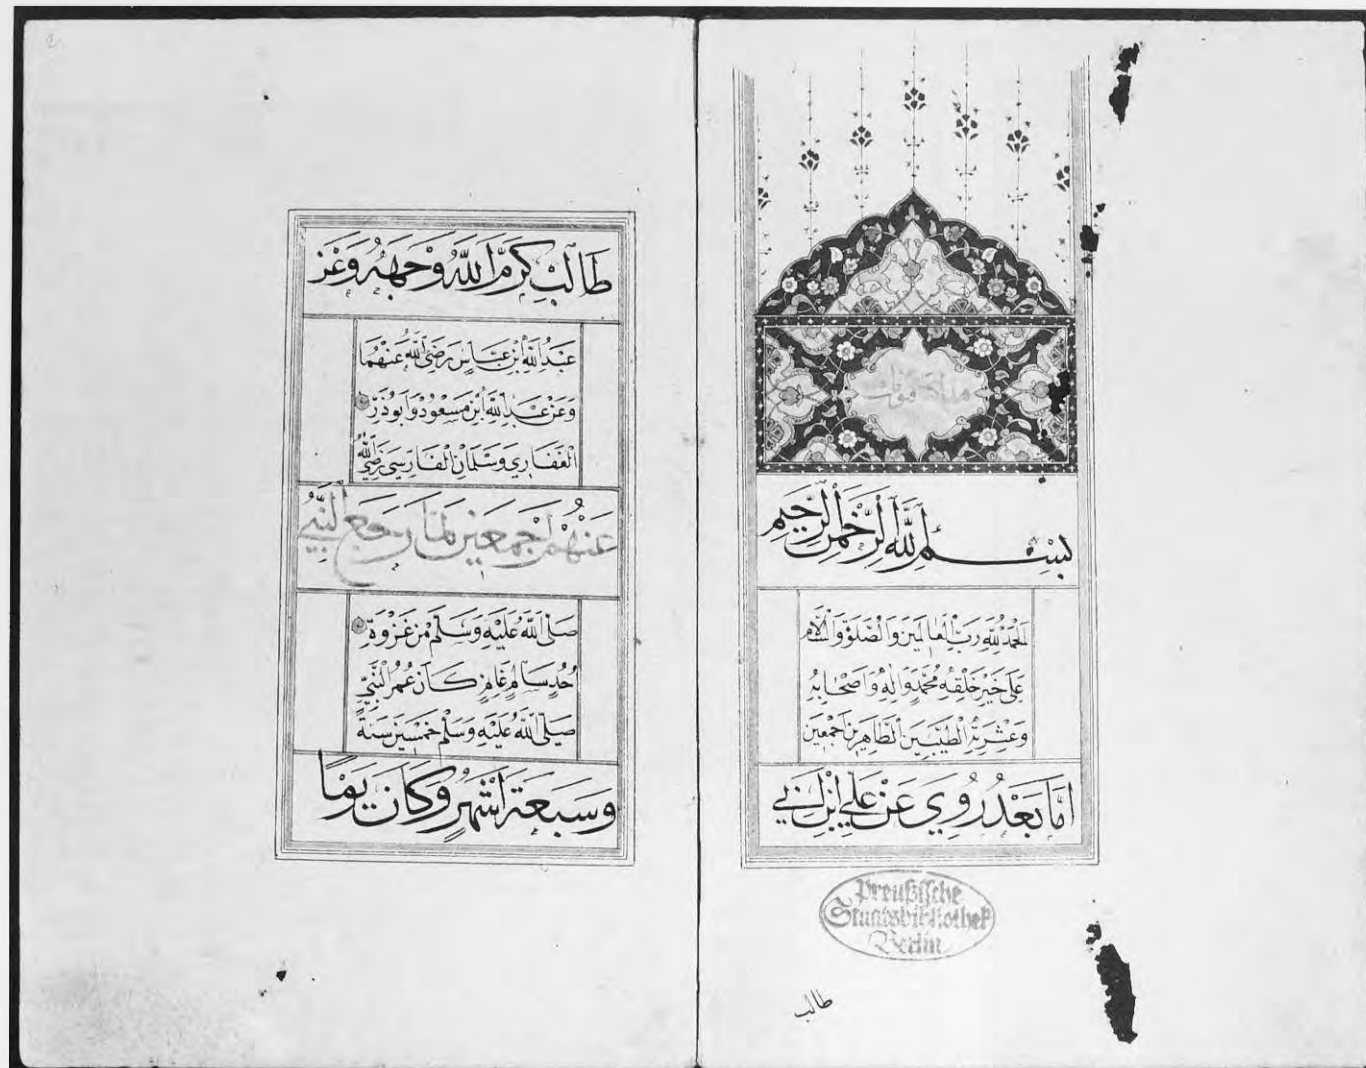 بِسْمِ اللهِ الرَّحْمٰنِ الرَّحِيمِ
اَلْحَمْدُ لِلّٰهِ رَبِّ الْعَالَمِينَ وَالصَّلَوةُ وَالسَّلَامُ
عَلَى خَيْرِ خَلْقِهِ مُحَمَّدٍ وَاٰلِهِ وَاَصْحَابِهِ
وَعِشْرَتِهِ الطَّيِّبِينَ الطَّاهِرِينَ اَجْمَعِينَ
اَمَّا بَعْدُ رُوِيَ عَنْ عَلِيِّ ابْنِ اَبِي
Preußische
Staatsbibliothek
Berlin
طالب
2
طَالِبْ كَرَّمَ اللهُ وَجْهَهُ وَعَنْ
عَبْدُ اللهِ ابْنِ عَبَّاسٍ رَضِيَ اللهُ عَنْهُمَا
وَعَنْ عَبْدِ اللهِ ابْنِ مَسْعُودْ وَاَبُوذَرِّ
الْغَفَارِي وَسَلْمَانِ الْفَارِسِي رَضِيَ اللهُ
عَنْهُمْ اَجْمَعِينَ لَمَّا رَجَعَ النَّبِيُّ
صَلَّى اللهُ عَلَيْهِ وَسَلَّمَ مِنْ غَزْوَةِ
اُحُدٍ سَالِمٍ غَانِمٍ كَانَ عُمُرُ النَّبِيِّ
صَلَّى اللهُ عَلَيْهِ وَسَلَّمَ خَمْسِينَ سَنَةً
وَسَبْعَةَ اَشْهُرٍ وَكَانَ يَوْمًا